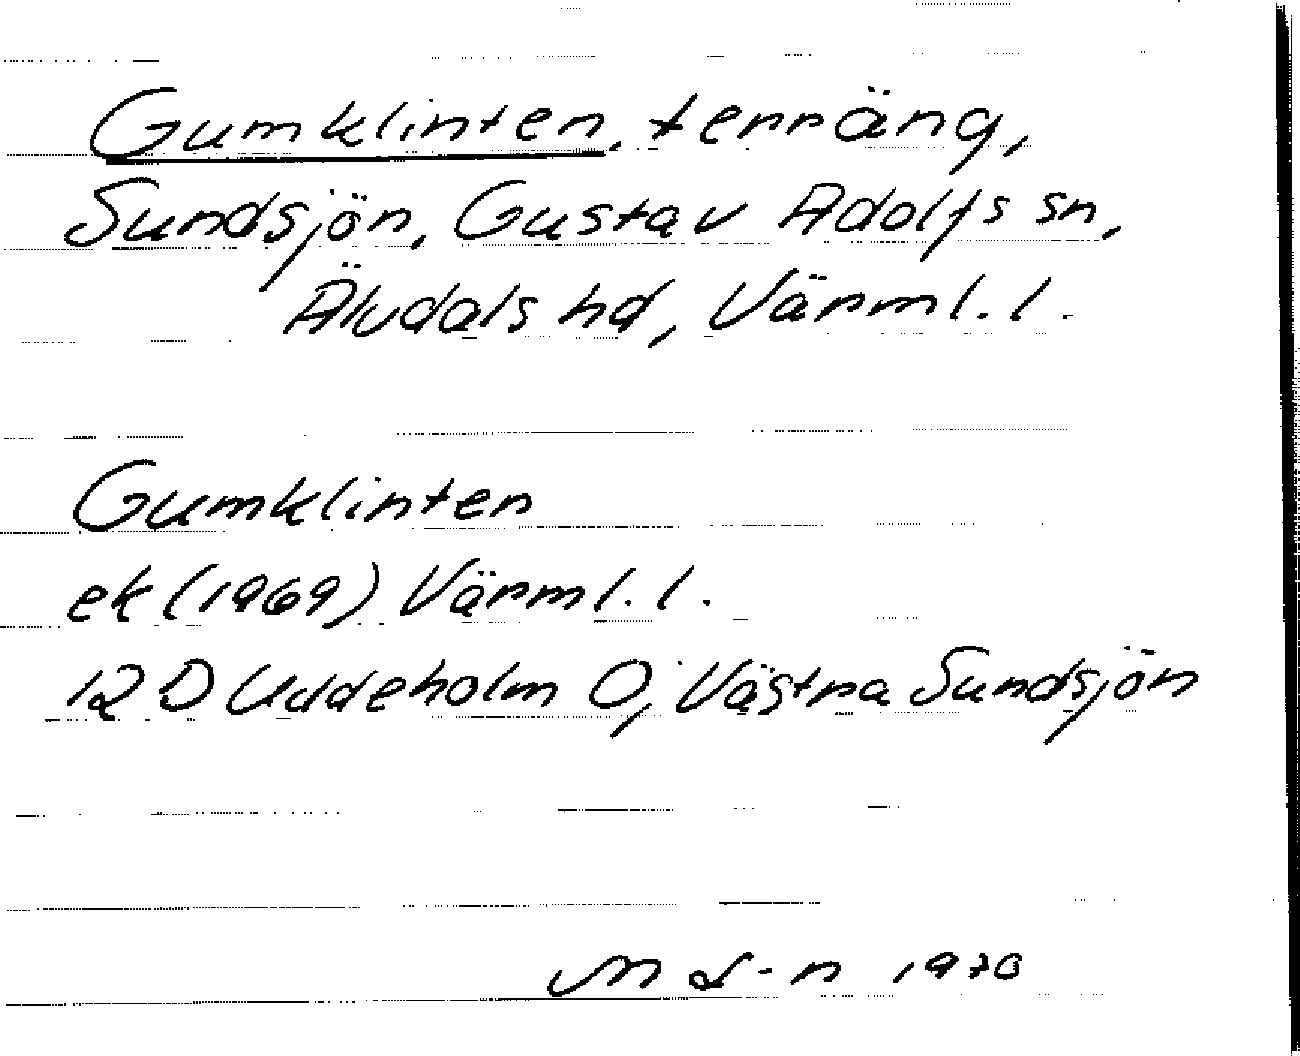 Gumklinten, terräng,
Sundsjön, Gustav Adolfs sn,
Älvdals hd, Värml. l.
Gumklinten
ek (1969) Värml. l.
12 D Uddeholm O; Västra Sundsjön
M L-n 1970